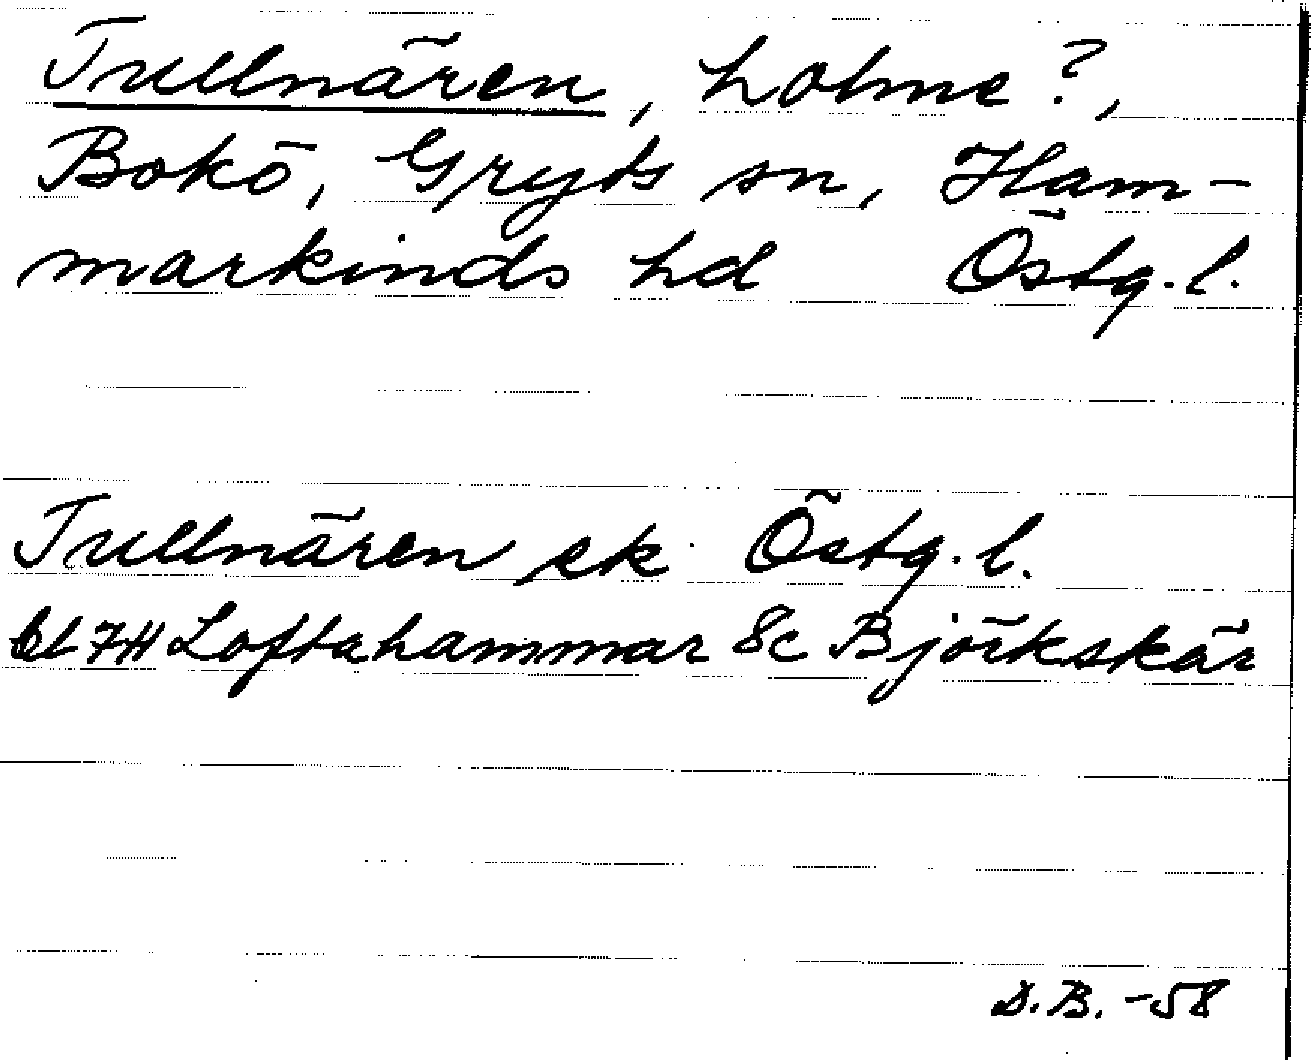 Tullnären, holme?,
Bokö, Gryts sn, Ham-
markinds hd Östg. l.
Tullnären ek Östg. l.
bl 7H Loftahammar 8c Björkskär
D.B. -58